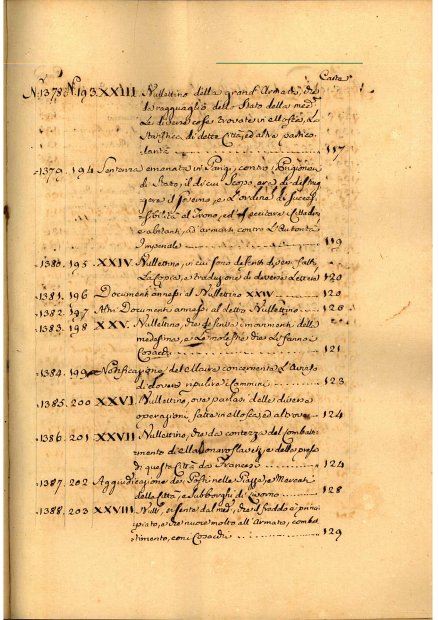 Carta
N.1378. N.193. XXIII Bullettino della grand'Armata, che
dà ragguaglio dello Stato della med.ª
le diverse cose trovate in Mosca, la
di dette Città, ed altre partico-
larità 117
1379. 194 Sentenza emanata in Parigi, contro i Prigionieri
di Stato, il di cui scopo, era di distrug-
gere il Governo, e l'ordine di succes-
sibilità al Trono, ed eccitare i Cittadini,
e abitanti, ad armarsi contro l'Autorità
Imperiale 119
1380. 195 XXIV Bullettino, in cui sono descritti diversi fatti,
La Copia, e traduzione di diverse Lettere 120
1381. 196 Documenti annessi al Bullettino XXIV 120
1382. 197 Altri Documenti annessi al detto Bullettino 120
1383. 198 XXV. Bullettino, che descrive i movimenti della
medesima, e le molestie che le fanno i
Cosacchi 121
1384. 199 Notificazione del Maire concernente l'
di dovere ripulire i Cammini 123
1385. 200 XXVI Bullettino, ove parlasi delle diverse
operazioni fatte in Mosca, ed altrove 124
1386. 201 XXVII Bullettino, che dà contezza del Combatti-
mento di Malojaroslavetz, e della presa
di questa Città da Francesi 124
1387. 202 Aggiudicazione dei Posti nelle Piazze, e Mercati
della Città, e Subborghi di Livorno 128
1388. 203 XXVIII Bull.º, risente dal med.º, che il freddo è princi-
piato, e che nuoce molto all'Armata, combat-
timento, con i Cosacchi 129